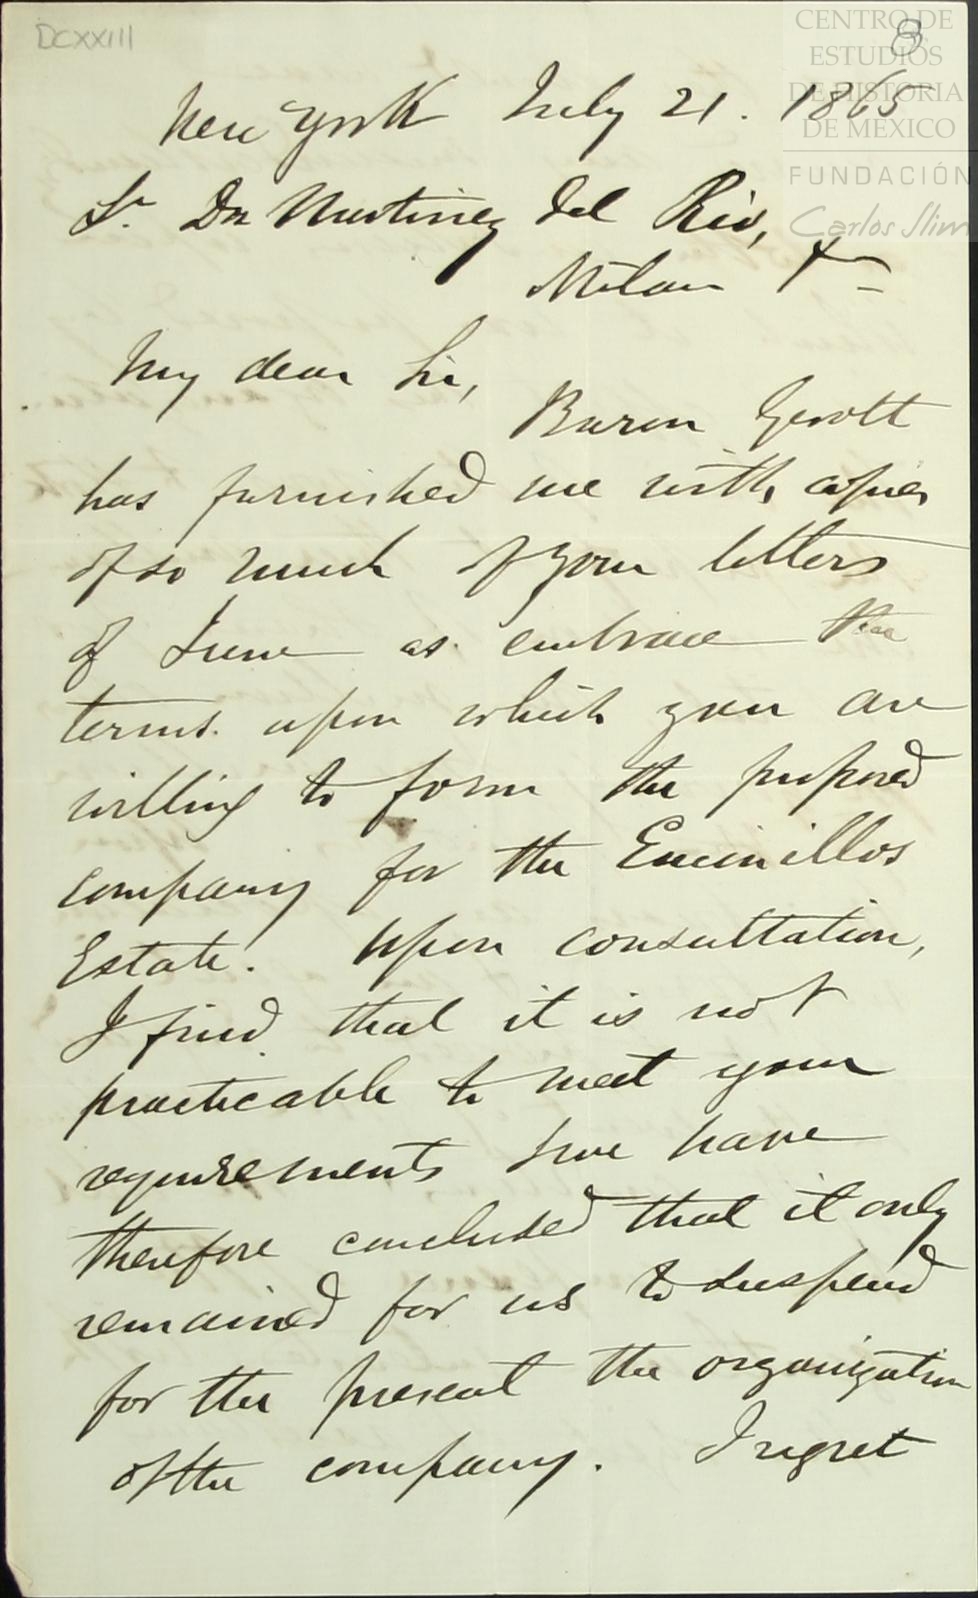 DCXXIII
8
CENTRO DE
ESTUDIOS
DE HISTORIA
DE MEXICO
FUNDACIÓN
Carlos Slim
New York July 21. 1865
Sr. Dn Martinez del Rio,
Milan
My dear Sir,
Baron Gerolt
has furnished me with copies
of so much of your letters
of June as embrace the
terms upon which you are
willing to form the proposed
company for the Encinillos
Estate. Upon consultation,
I find that it is not
practicable to meet your
requirements & we have
therefore concluded that it only
remained for us to suspend
for the present the organization
of the company. I regret